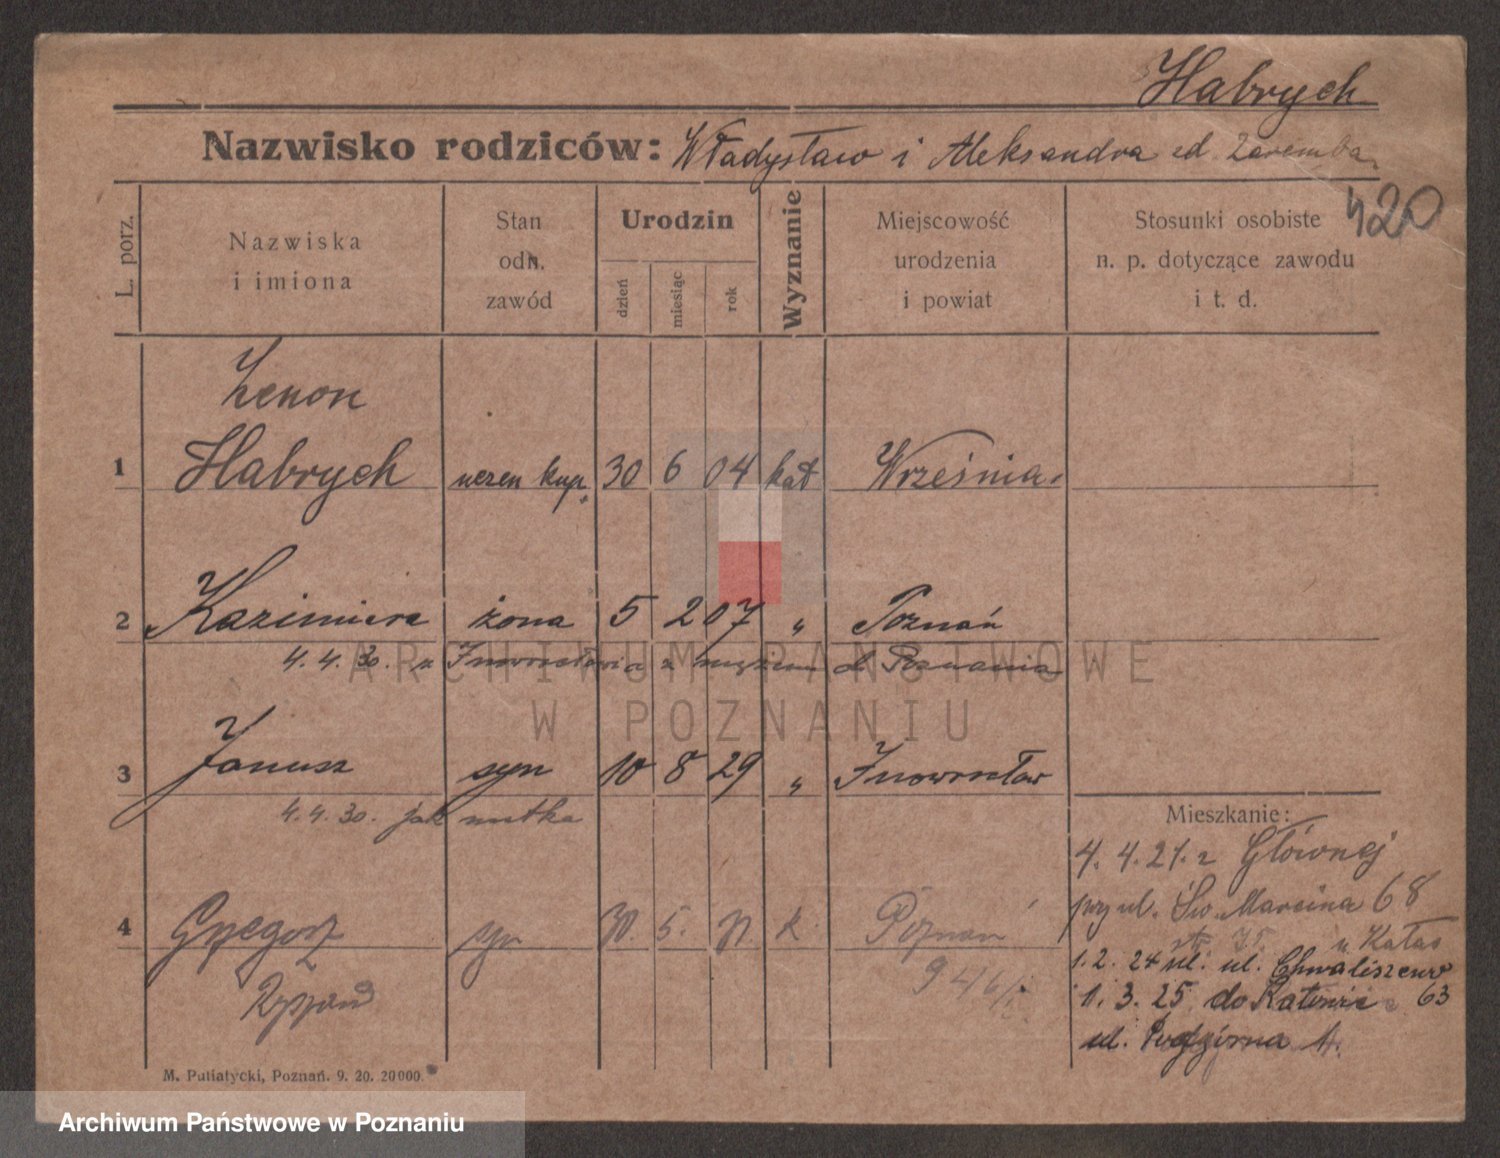 Habrych
Nazwisko rodziców: Władysław i Aleksandra zd. Zaremba.
420
L. porz.
Nazwiska
i imiona
Stan
odn.
zawód
Urodzin
dzień
miesiąc
rok
Wyznanie
Miejscowość
urodzenia
i powiat
Stosunki osobiste
n. p. dotyczące zawodu
i t. d.
Zenon
1 Habrych uczen kup. 30 6 04 kat Września.
2 Kazimiera żona 5 2 07 " Poznań
4. 4. 30. z Inowrocławia z mężem do Poznania
ARCHIWUM PAŃSTWOWE
W POZNANIU
3 Janusz syn 10 8 29 " Inowrocław
4. 4. 30. jak matka
Mieszkanie:
4. 4. 21. z Głównej
przy ul. Św. Marcina 68
4 Grzegorz syn 5. k. Poznań
u Kałas
1. 2. 24 ul. Chwaliszewo
63
1. 3. 25. do
ul. Podgórna 1.
946/
M. Putiatycki, Poznań. 9. 20. 20000.
Archiwum Państwowe w Poznaniu